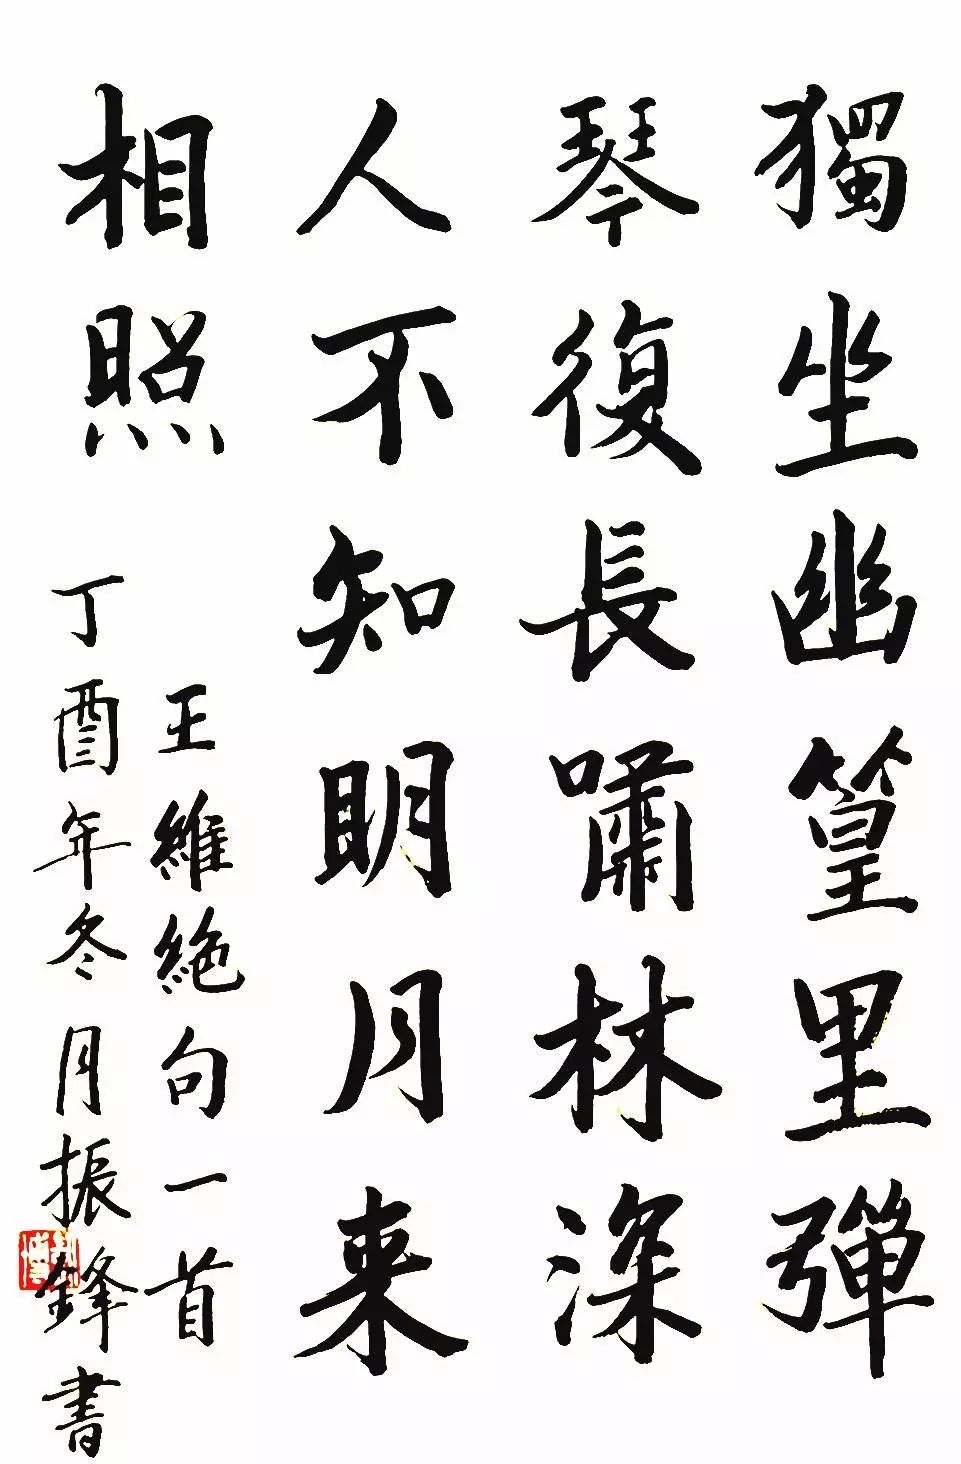 獨坐幽篁里彈
琴復長嘯林深
人不知明月来
相照
王維絕句一首
丁酉年冬月振鋒書